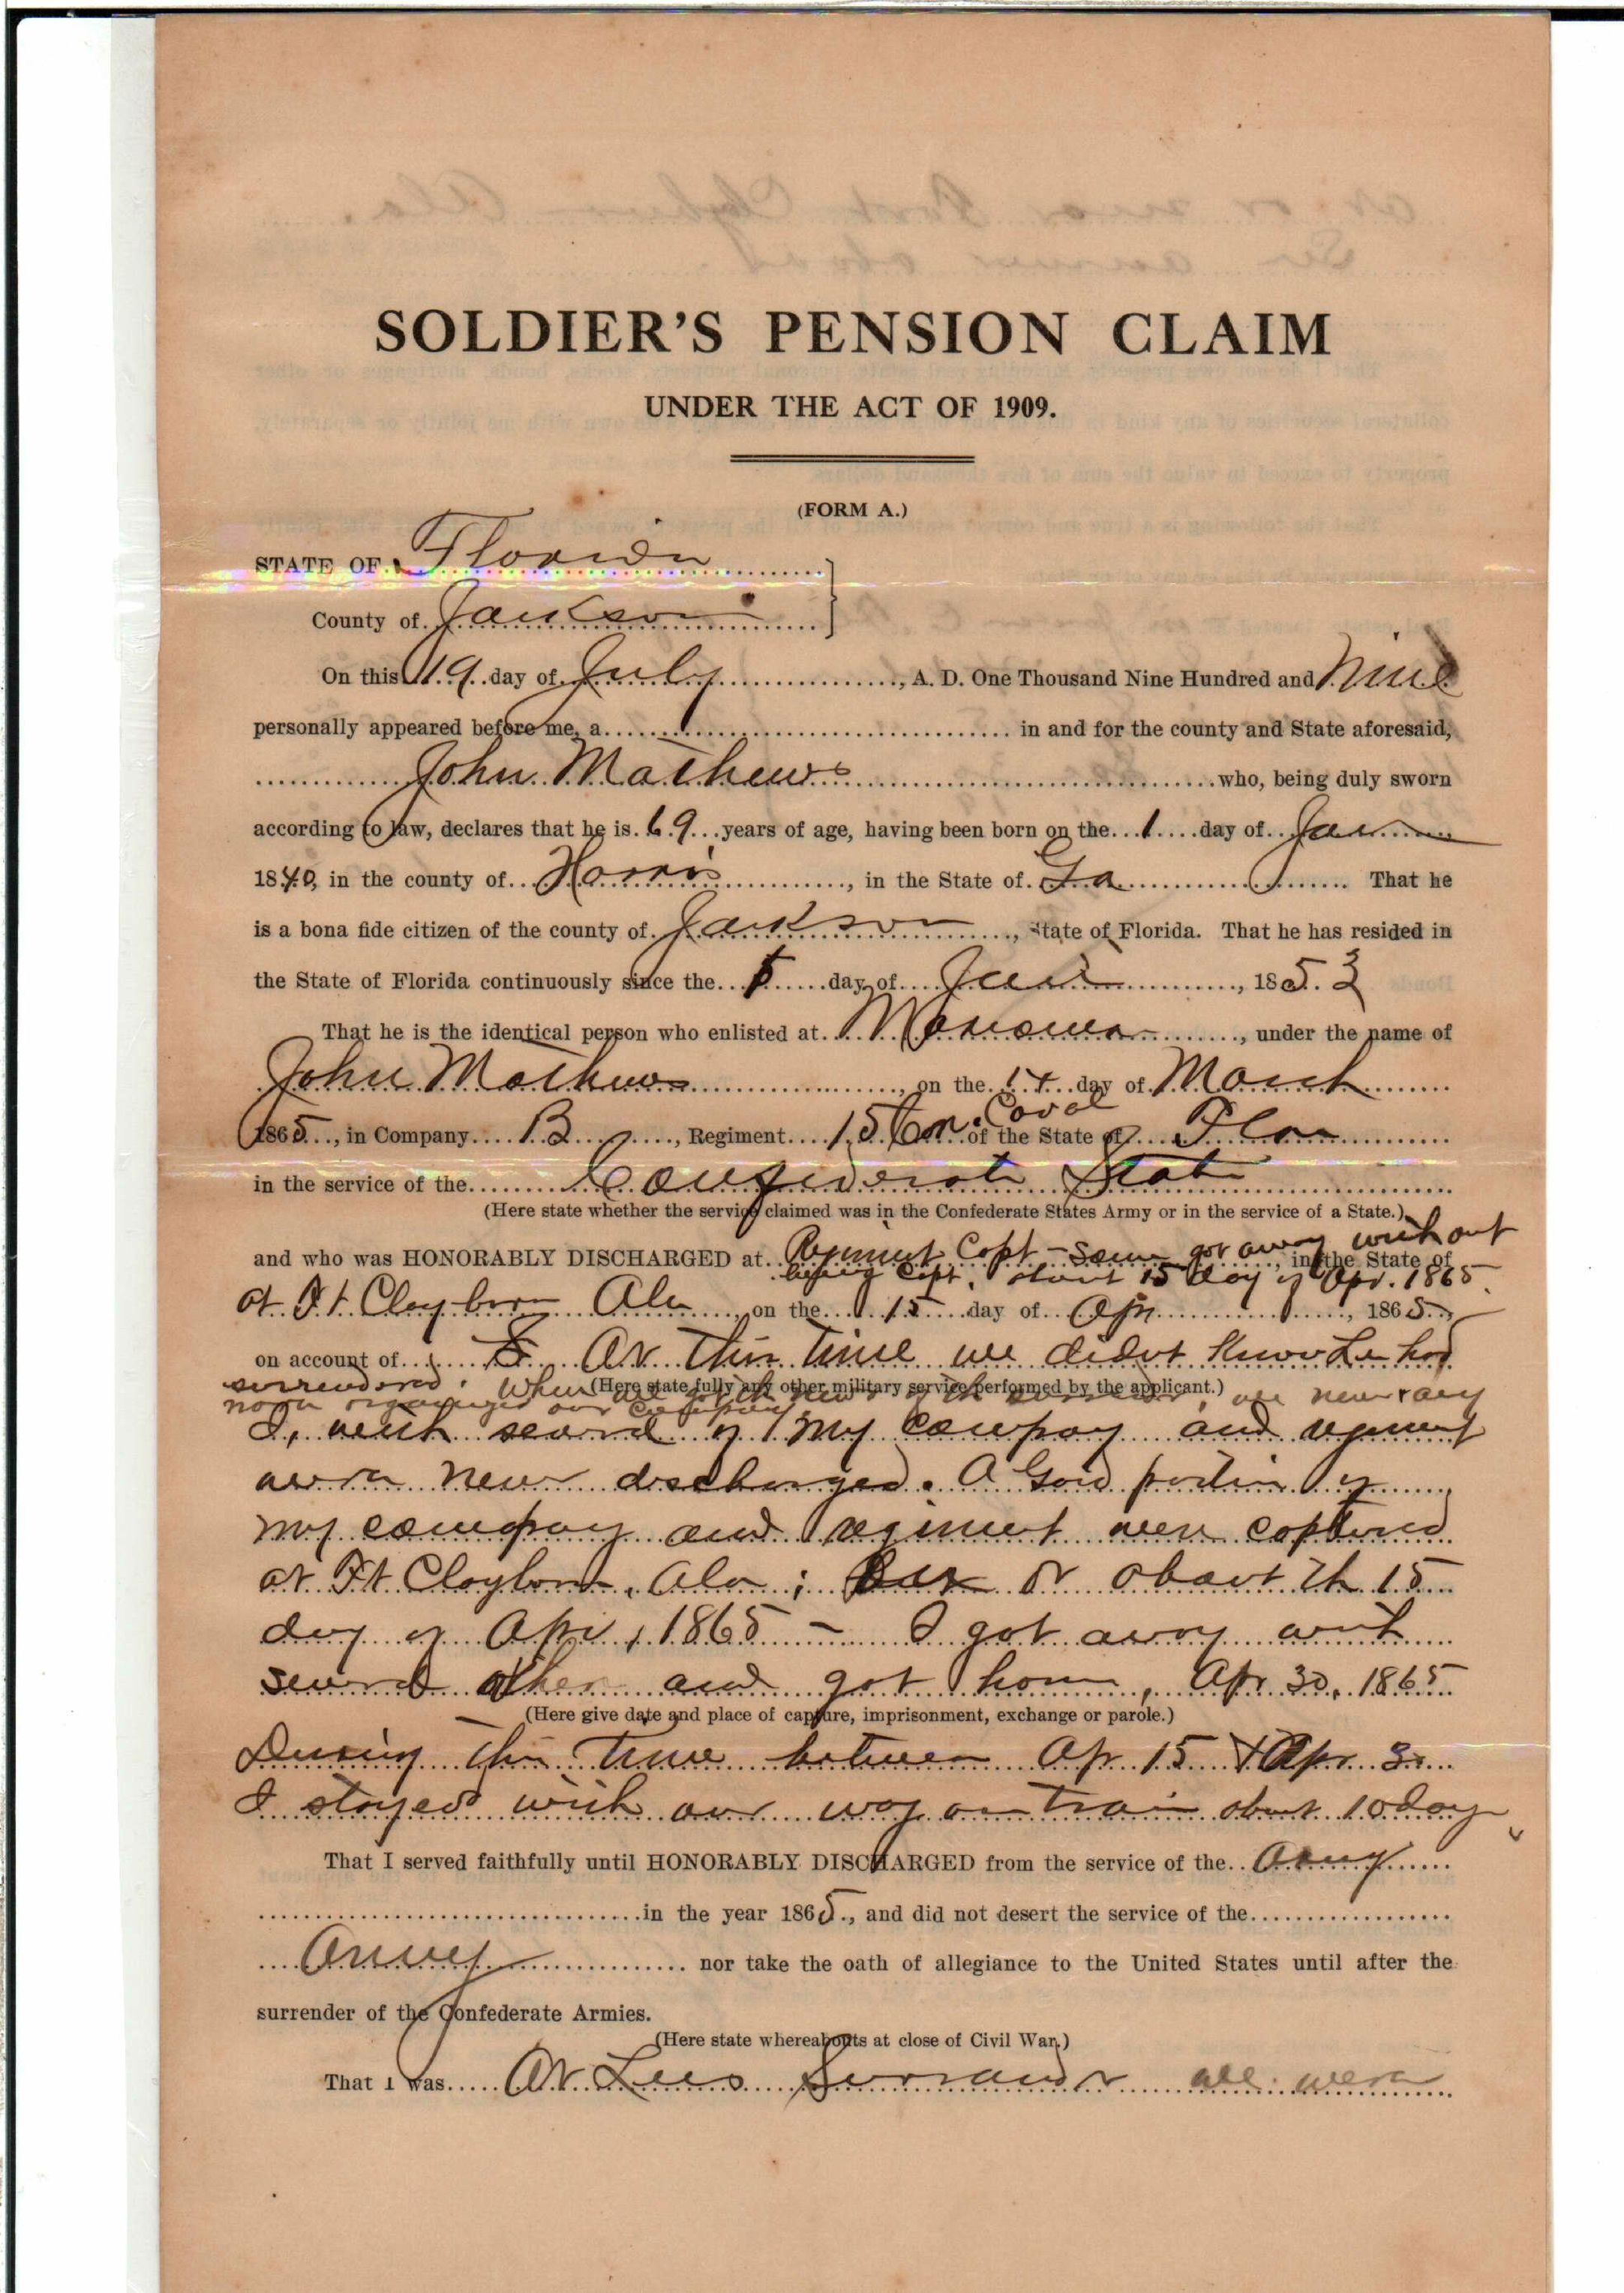 SOLDIER'S PENSION CLAIM
UNDER THE ACT OF 1909.
(FORM A.)
STATE OF Florida
County of Jackson
On this 19 day of July, A. D. One Thousand Nine Hundred and Nine
personally appeared before me, a in and for the county and State aforesaid,
John Mathews who, being duly sworn
according to law, declares that he is 69 years of age, having been born on the 1 day of Jan
1840, in the county of Harris, in the State of Ga That he
is a bona fide citizen of the county of Jackson, State of Florida. That he has resided in
the State of Florida continuously since the day of, 1853
That he is the identical person who enlisted at Marianna, under the name of
John Mathews, on the day of March
1865, in Company B, Regiment 15 Con. Caval of the State of Fla
in the service of the Confederate State
(Here state whether the service claimed was in the Confederate States Army or in the service of a State.)
and who was HONORABLY DISCHARGED at Regiment Capt - Some got away without, in the State of
being Capt. about 15 day of Apr. 1865.
at Ft Clayborn Ala, on the 15 day of Apr, 1865,
on account of At this time we didnt know Lee had
surrendered. When we got the news of the surrender, we never any
(Here state fully any other military service performed by the applicant.)
more organized our company.
I, with several of my company and regiment
were never discharged. A Good portion of
my company and regiment were captured
at Ft Clayborn, Ala; on or about th 15
day of Apr, 1865 - I got away with
several others and got home, Apr 30, 1865
(Here give date and place of capture, imprisonment, exchange or parole.)
During this time between Ap 15 & Apr 30
I stayed with our wagon train about 10 days
That I served faithfully until HONORABLY DISCHARGED from the service of the Army
in the year 1865, and did not desert the service of the
Army nor take the oath of allegiance to the United States until after the
surrender of the Confederate Armies.
(Here state whereabouts at close of Civil War.)
That I was At Lees Surrander we were